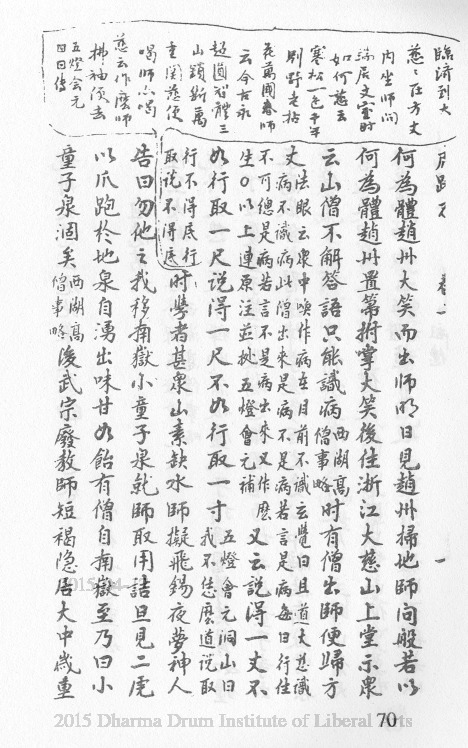 臨濟到大
慈慈在方丈
內坐師問
端居丈室時
如何慈云
寒松一色千年
別野老拈
花萬國春師
云今古永
超圓智體三
山鎖斷萬
重關慈便
喝師亦喝
慈云作麼師
拂袖便去
五燈會元
卷一
一
何為體趙州大笑而出師明日見趙州掃地師問般若以
何為體趙州置箒拊掌大笑後住浙江大慈山上堂示眾
云山僧不解答語只能識病西湖高僧事略時有僧出師便歸方
丈法眼云眾中喚作病在目前不識玄覺曰且道大慈識
病不識病此僧出來是病不是病若言是病每日行住
不可總是病若言不是病出來又作麼
生○以上連原注並據五燈會元補又云說得一丈不
如行取一尺說得一尺不如行取一寸五燈會元洞山曰我不恁麼道說取
行不得底行取說不得底時學者甚眾山素缺水師擬飛錫夜夢神人
告曰勿他之我移南嶽小童子泉就師取用詰旦見二虎
以爪跑於地泉自湧出味甘如飴有僧自南嶽至乃曰小
童子泉涸矣西湖高僧事略後武宗廢教師短褐隱居大中歲重
2015 Dharma Drum Institute of Liberal Arts
70